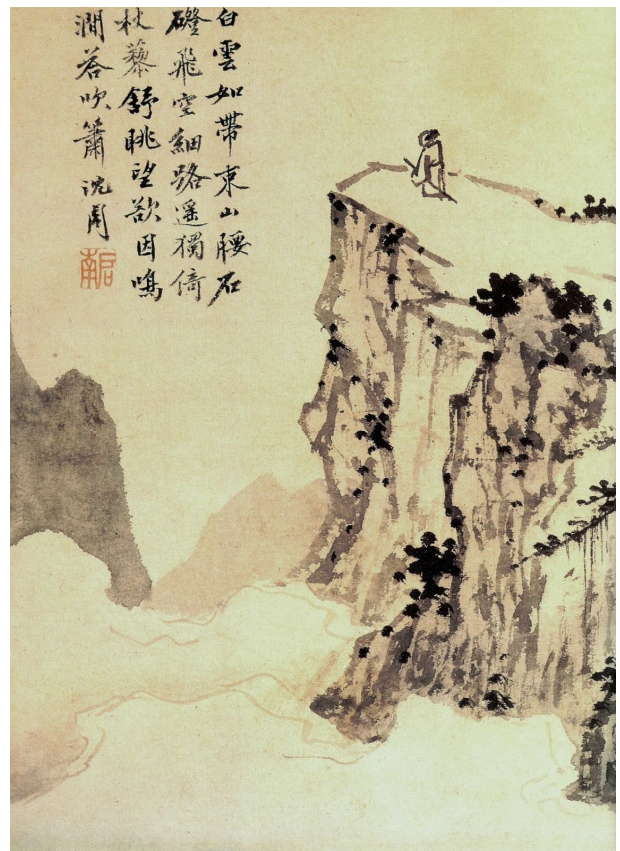 白雲如帶束山腰石
磴飛空細路遥獨倚
杖藜舒眺望欲因鳴
澗荅吹簫 沈周
启南